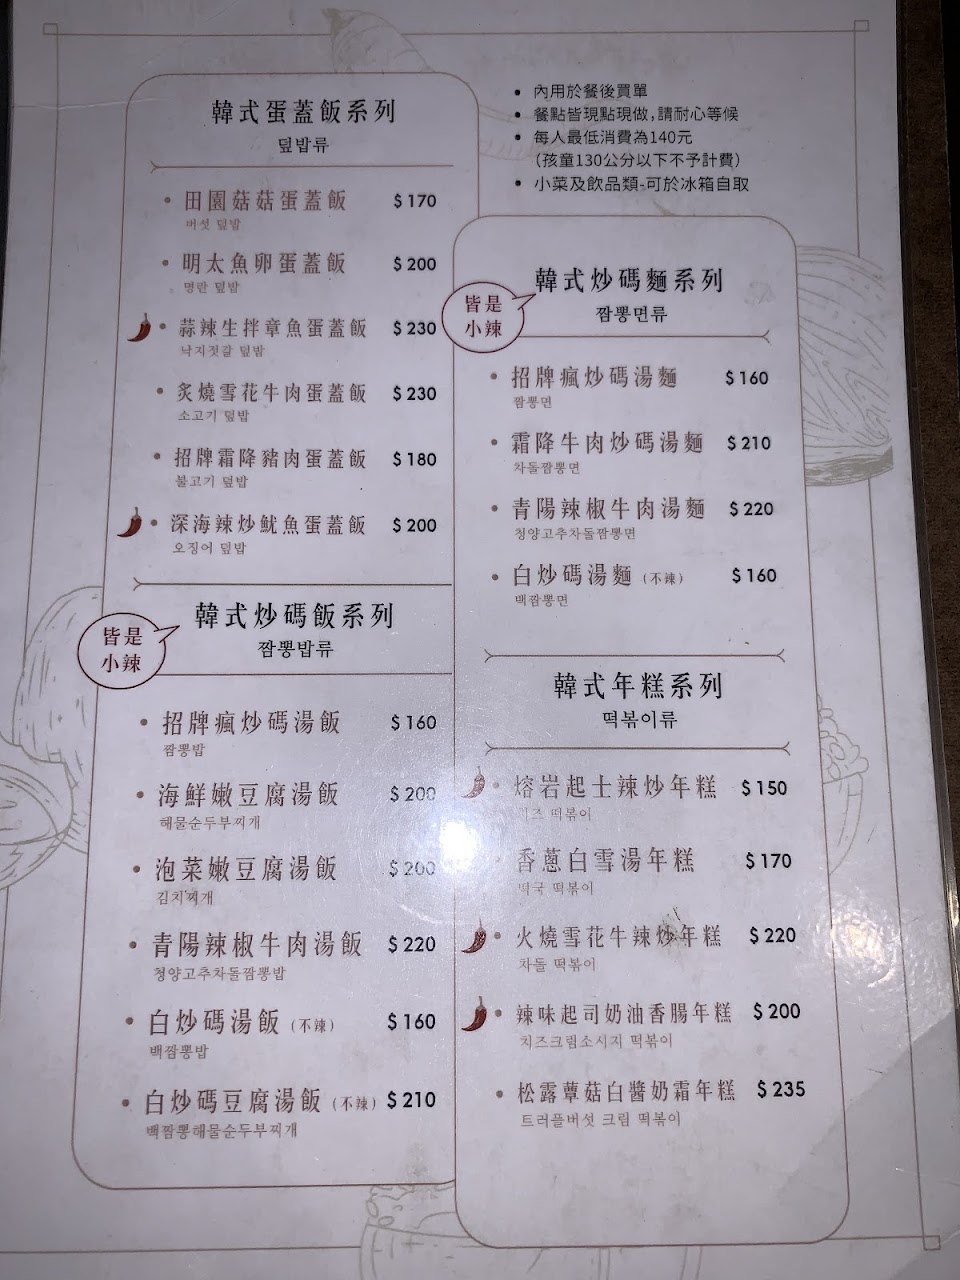 韓式蛋蓋飯系列
덮밥류
田園菇菇蛋蓋飯 $170
버섯 덮밥
明太魚卵蛋蓋飯 $200
명란 덮밥
蒜辣生拌章魚蛋蓋飯 $230
낙지젓갈 덮밥
炙燒雪花牛肉蛋蓋飯 $230
소고기 덮밥
招牌霜降豬肉蛋蓋飯 $180
불고기 덮밥
深海辣炒魷魚蛋蓋飯 $200
오징어 덮밥
韓式炒碼飯系列
짬뽕밥류
皆是
小辣
招牌瘋炒碼湯飯 $160
짬뽕밥
海鮮嫩豆腐湯飯 $200
해물순두부찌개
泡菜嫩豆腐湯飯 $200
김치찌개
青陽辣椒牛肉湯飯 $220
청양고추차돌짬뽕밥
白炒碼湯飯 (不辣) $160
백짬뽕밥
白炒碼豆腐湯飯 (不辣) $210
백짬뽕해물순두부찌개
內用於餐後買單
餐點皆現點現做,請耐心等候
每人最低消費為140元
(孩童130公分以下不予計費)
小菜及飲品類-可於冰箱自取
韓式炒碼麵系列
짬뽕면류
皆是
小辣
招牌瘋炒碼湯麵 $160
짬뽕면
霜降牛肉炒碼湯麵 $210
차돌짬뽕면
青陽辣椒牛肉湯麵 $220
청양고추차돌짬뽕면
白炒碼湯麵 (不辣) $160
백짬뽕면
韓式年糕系列
떡볶이류
熔岩起士辣炒年糕 $150
치즈 떡볶이
香蔥白雪湯年糕 $170
떡국 떡볶이
火燒雪花牛辣炒年糕 $220
차돌 떡볶이
辣味起司奶油香腸年糕 $200
치즈크림소시지 떡볶이
松露蕈菇白醬奶霜年糕 $235
트러플버섯 크림 떡볶이